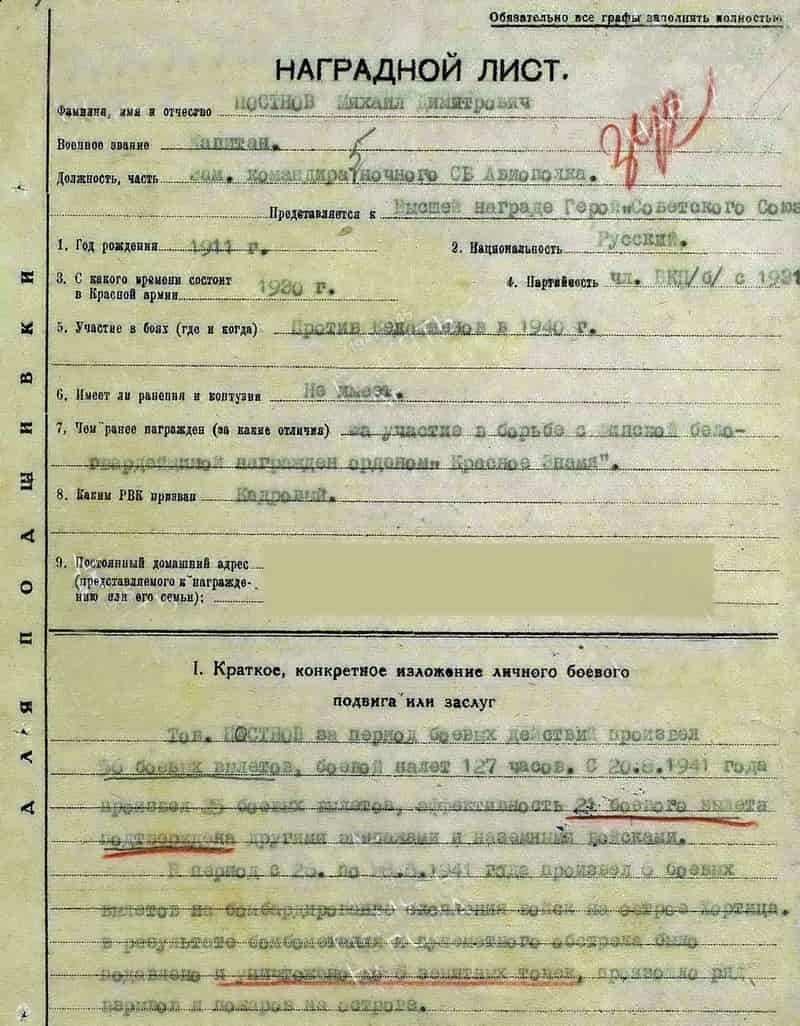 Обязательно все графы заполнять полностью
НАГРАДНОЙ ЛИСТ.
Фамилия, имя и отчество ПОСТНОВ Михаил Дмитрович
Военное звание Капитан.
Должность, часть зам. командира ночного СБ Авиополка.
Представляется к Высшей награде Герой „Советского Союза
1. Год рождения 1911 г. 2. Национальность Русский.
3. С какого времени состоит
в Красной армии 1930 г. 4. Партийность чл. ВКП/б/ с 1931
5. Участие в боях (где и когда) Против в 1940 г.
6. Имеет ли ранения и контузии Не имеет.
7, Чем ранее награжден (за какие отличия) за участие в борьбе с бело-
награжден орденом „Красное Знамя".
8. Каким РВК призван Кадровый.
9. Постоянный домашний адрес
(представляемого к награжде-
нию или его семьи):
I. Краткое, конкретное изложение личного боевого
подвига или заслуг
Тов. ПОСТНОВ за период боевых действий произвел
боевых вылетов, боевой налет 127 часов. С 1941 года
произвел боевых вылетов, эффективность боевого вылета
подтверждена другими и наземными войсками.
В период с по 1941 года произвел 6 боевых
вылетов на бомбардирование войск на остров Хортица.
в результате бомбометания и обстрела было
подавлено и уничтожено до зенитных точек, ряд
взрывов и пожаров на острова.
ДЛЯ ПОДШИВКИ